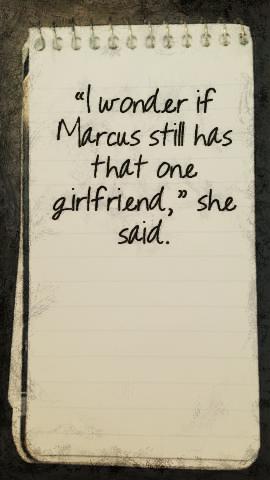 “I wonder if
Marcus still has
that one
girlfriend,” she
said.